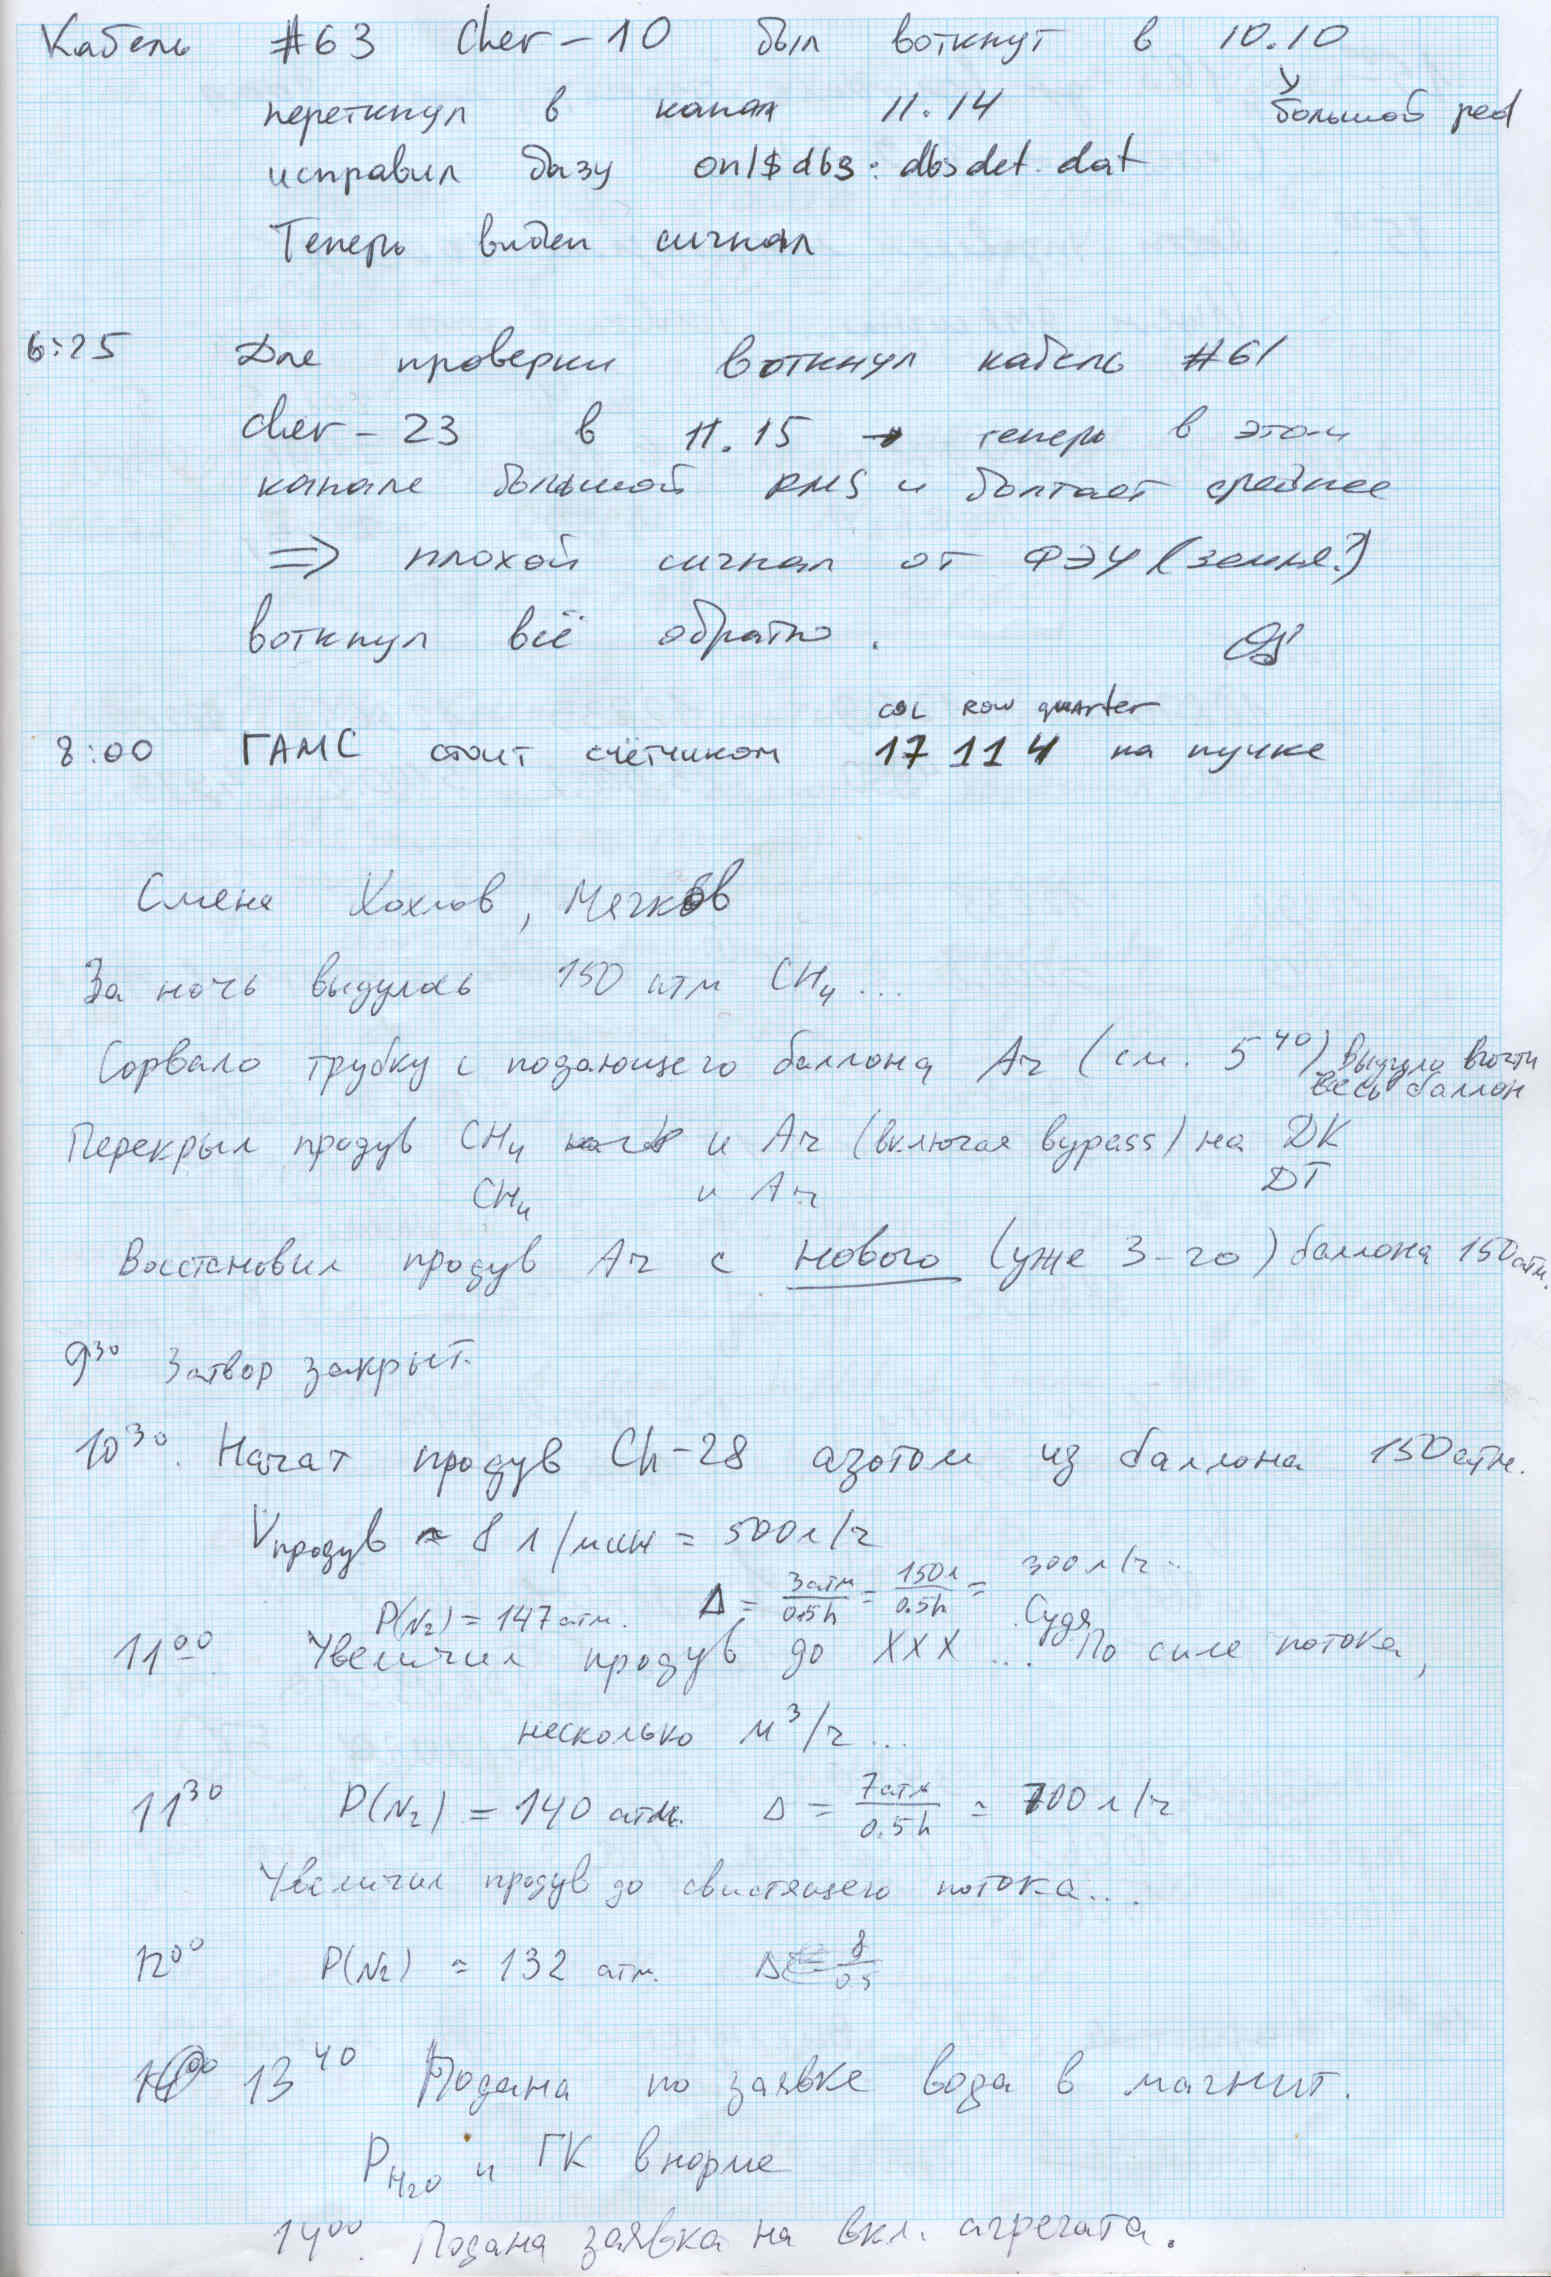 Кабель #63 Cher-10 был воткнут в 10.10
переткнул в канал 11.14 большой ped
исправил базу onl$dbs:dbsdet.dat
Теперь виден сигнал
6:25 Для проверки воткнул кабель #61
cher-23 в 11.15 → теперь в этом
канале большой RMS и болтает среднее
=> плохой сигнал от ФЭУ (земля?)
воткнул всё обратно.
COL ROW quarter
8:00 ГАМС стоит счётчиком 17 11 4 на пучке
Смена Хохлов, Мягков
За ночь выдулось 150 атм CH4...
Сорвало трубку с подающего баллона Ar (см. 5 40) Выдуло почти
весь баллон
Перекрыл продув CH4 и Ar (включая bypass) на ДК
CH4 и Ar ДТ
Восстановил продув Ar с нового (уже 3-го) баллона 150 атм.
9 30 Затвор закрыт.
10 30. Начат продув Ch-28 азотом из баллона 150 атм.
Vпродув ~ 8 л/мин = 500 л/ч
P(N2) = 147 атм. Δ = 3атм/0.5h = 150л/0.5h = 300 л/ч..
11 00 Увеличил продув до XXX ... Судя По силе потока,
несколько м³/ч...
11 30 P(N2) = 140 атм. Δ = 7атм/0.5h = 700 л/ч
Увеличил продув до свистящего потока...
12 00 P(N2) = 132 атм. Δ = 8/0.5
13 40 Подана по заявке вода в магнит.
P H2O и ГК в норме
14 00. Подана заявка на вкл. агрегата.